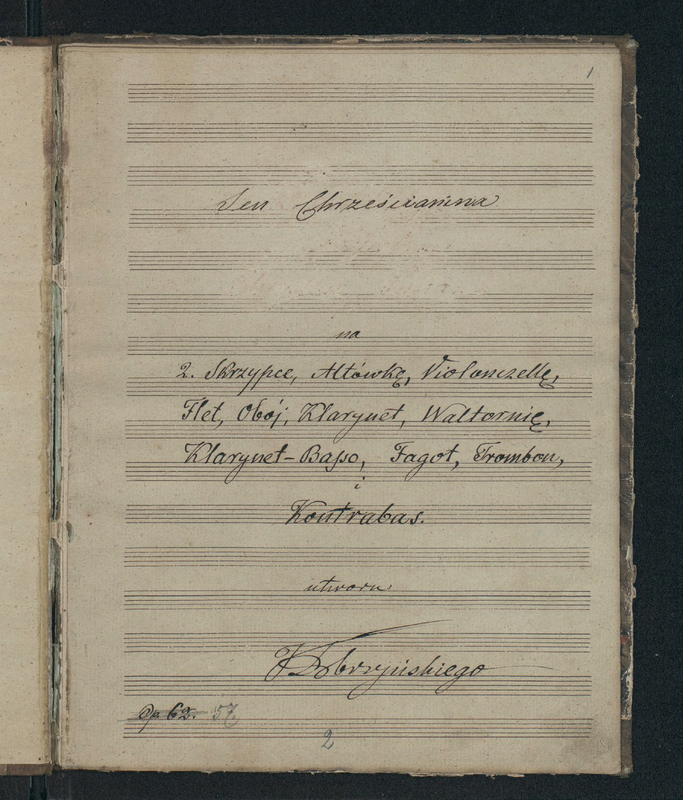 1
Sen Chrześcianina
na
2. Skrzypce, Altówkę, Violonczellę,
Flet, Obój, Klarynet, Waltornię,
Klarynet-Basso, Fagot, Trombon,
i
Kontrabas.
utworu
Dobrzyńskiego
Op 62. 57
2